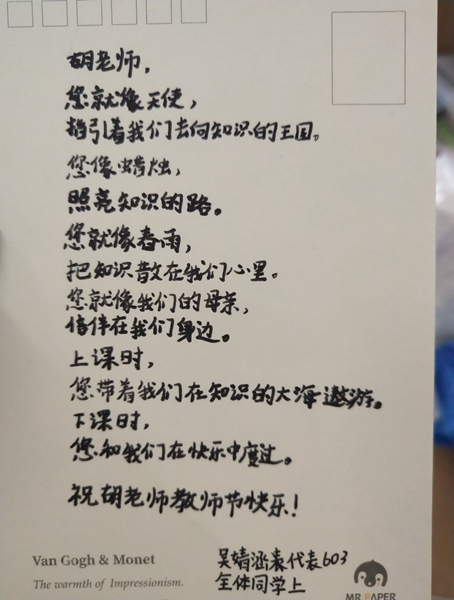 胡老师，
您就像天使，
指引着我们去向知识的王国。
您像蜡烛，
照亮知识的路。
您就像春雨，
把知识散在我们心里。
您就像我们的母亲，
陪伴在我们身边。
上课时，
您带着我们在知识的大海遨游。
下课时，
您和我们在快乐中度过。
祝胡老师教师节快乐！
吴婧涵代表603
全体同学上
Van Gogh & Monet
The warmth of Impressionism.
MR.PAPER